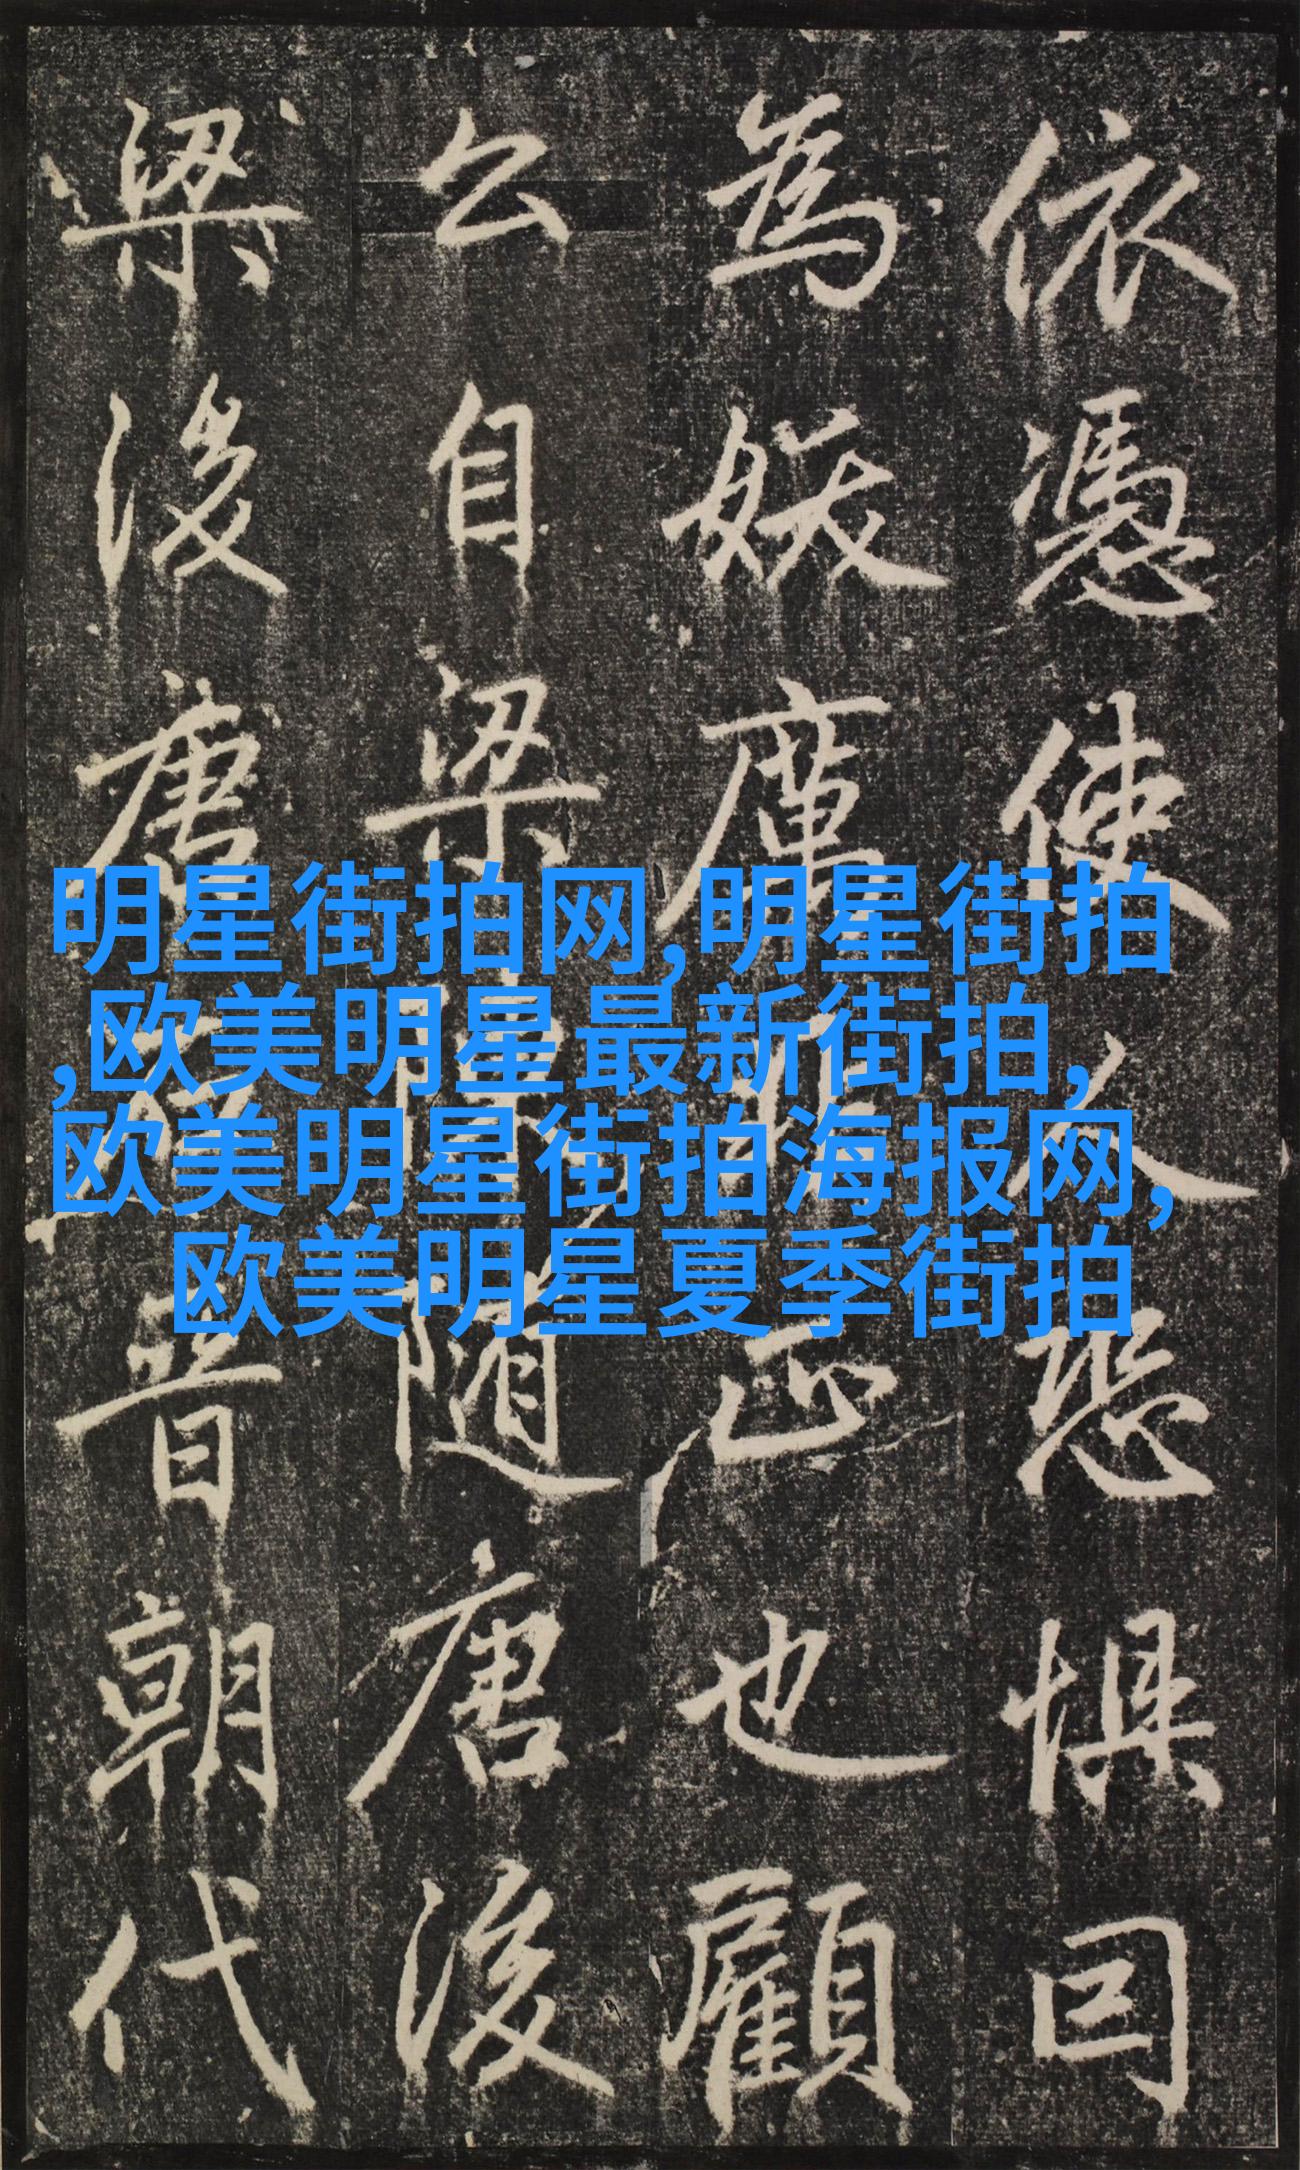 明星街拍网,明星街拍
,欧美明星最新街拍,
欧美明星街拍海报网,
欧美明星夏季街拍
依憑使人恐懼囙
為妖厲正也顧
公自梁陳隨唐後
梁後唐晉朝代